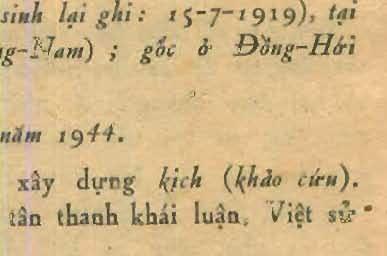 sinh lại ghi : 15-7-1919), tại
g-Nam) ; gốc ở Đồng-Hới
năm 1944.
xây dựng kịch (khảo cứu).
tân thanh khái luận, Việt sử